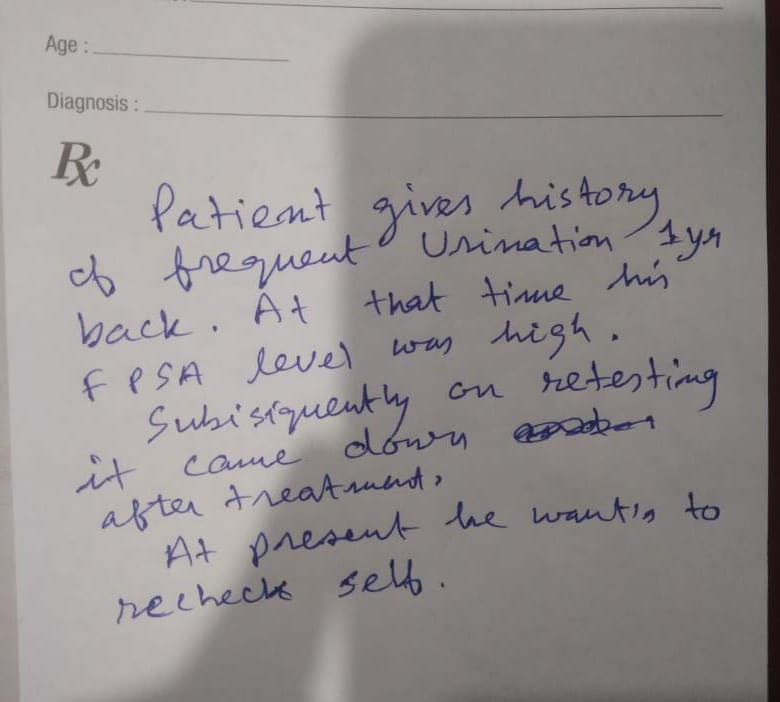 Age :
Diagnosis :
Rx
Patient gives history
of frequent Urination 1yr
back. At that time his
f PSA level was high.
Subisiquently on retesting
it came down
after treatment,
At present he want's to
recheck self.